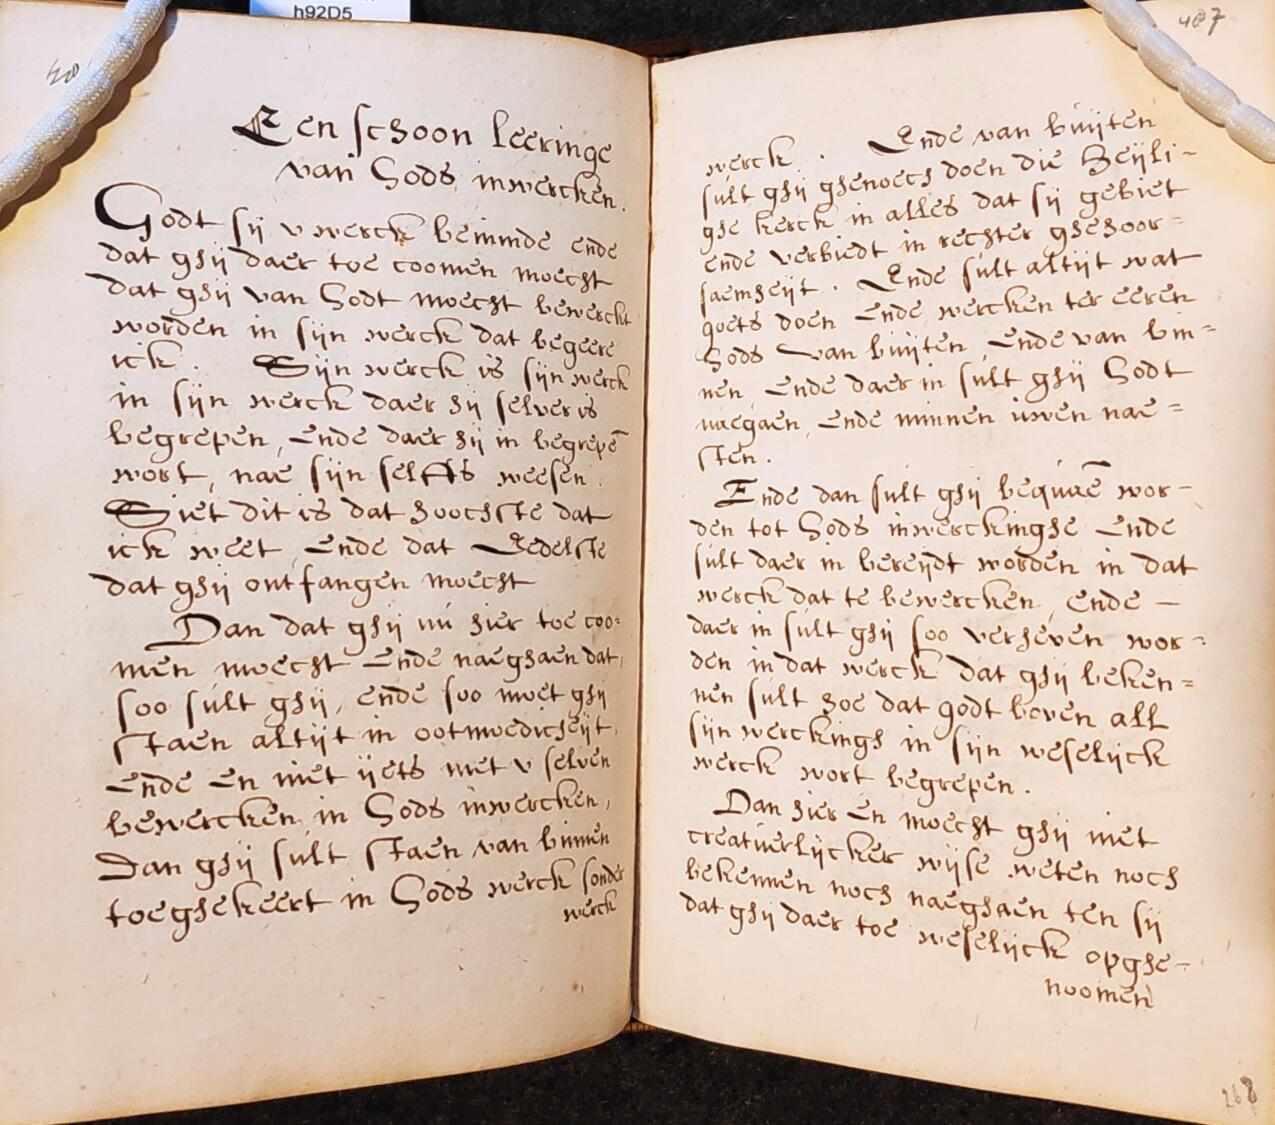 h92D5
Een schoon leeringe
van Gods inwercken.
Godt sij v werck beminde ende
dat ghij daer toe coomen moecht
dat ghij van Godt moecht bewerckt
worden in sijn werck dat begeere
ick. Sijn werck is sijn werck
in sijn werck daer hij selver is
begrepen, ende daer hij in begrepē
wort, nae sijn selffs weesen.
Siet dit is dat hoochste dat
ick weet, ende dat Eedelste
dat ghij ontfangen moecht
Dan dat ghij nú hier toe coo=
men moecht ende naeghaen dat,
soo súlt ghij, ende soo moet ghij
staen altijt in ootmoedicheijt,
ende en niet ijets met v selven
bewercken in Gods inwercken,
Dan ghij súlt staen van binnen
toeghekeert in Gods werck sonder
werck
487
werck. Ende van búijten
súlt ghij ghenoech doen die Heijli=
ghe kerck in alles dat sij gebiet
ende verbiedt in rechter ghehoor=
saemheijt. Ende súlt altijt wat
goets doen ende wercken ter eeren
Gods van búijten, ende van bin=
nen, ende daer in súlt ghij Godt
naegaen, ende minnen úwen nae=
sten.
Ende dan súlt ghij bequaē wor-
den tot Gods inwerckinghe ende
súlt daer in bereijdt worden in dat
werck dat te bewercken, ende —
daer in súlt ghij soo verheven wor=
den in dat werck dat ghij beken=
nen súlt hoe dat godt boven all
sijn werckingh in sijn weselijck
werck wort begrepen.
Dan hier en moecht ghij niet
creatúerlijcker wijse weten noch
bekennen noch naeghaen ten sij
dat ghij daer toe weselijck opghe-
noomen
268